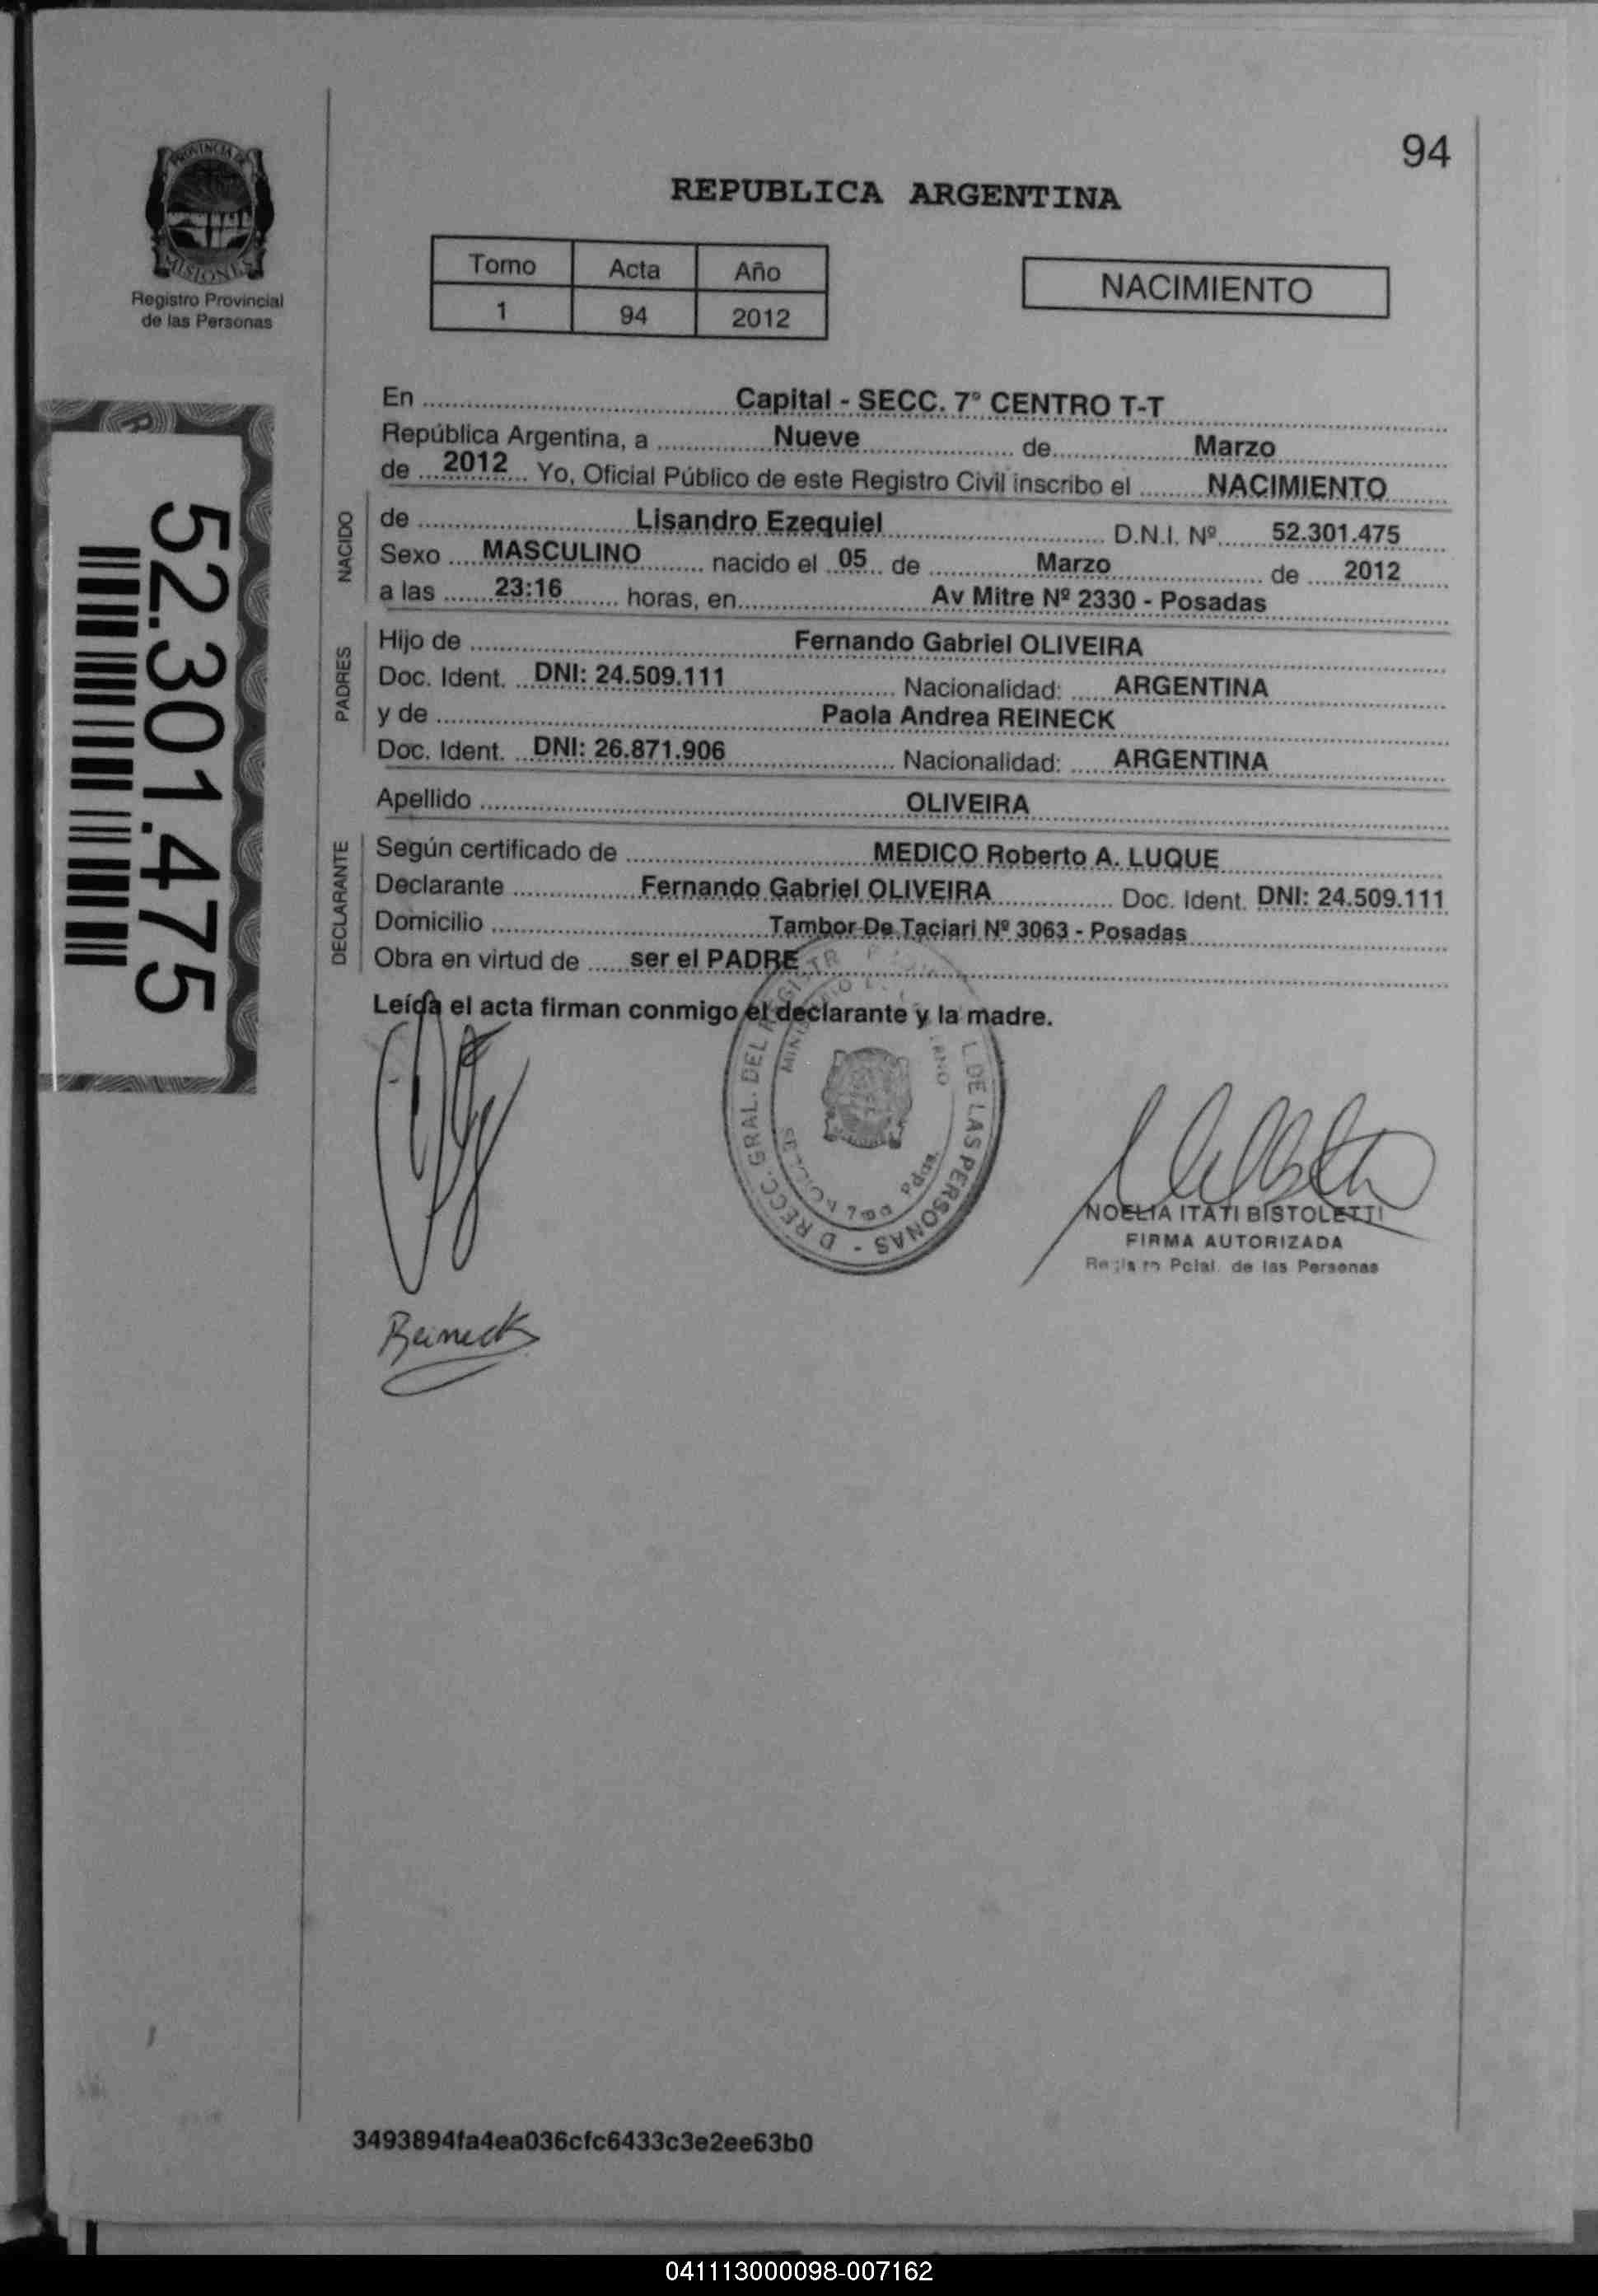 94
REPUBLICA ARGENTINA
PROVINCIA DE
MISIONES
Registro Provincial
de las Personas
Tomo Acta Año
1 94 2012
NACIMIENTO
En Capital - SECC. 7º CENTRO T-T
República Argentina, a Nueve de Marzo
de 2012 Yo, Oficial Público de este Registro Civil inscribo el NACIMIENTO
NACIDO
de Lisandro Ezequiel D.N.I. Nº 52.301.475
Sexo MASCULINO nacido el 05 de Marzo de 2012
a las 23:16 horas, en Av Mitre Nº 2330 - Posadas
PADRES
Hijo de Fernando Gabriel OLIVEIRA
Doc. Ident. DNI: 24.509.111 Nacionalidad: ARGENTINA
y de Paola Andrea REINECK
Doc. Ident. DNI: 26.871.906 Nacionalidad: ARGENTINA
Apellido OLIVEIRA
DECLARANTE
Según certificado de MEDICO Roberto A. LUQUE
Declarante Fernando Gabriel OLIVEIRA Doc. Ident. DNI: 24.509.111
Domicilio Tambor De Taciari Nº 3063 - Posadas
Obra en virtud de ser el PADRE
Leída el acta firman conmigo el declarante y la madre.
52.301.475
GRAL. DEL DE LAS PERSONAS
Pdas.
NOELIA ITATI BISTOLETTI
FIRMA AUTORIZADA
Pcial. de las Personas
Reineck
3493894fa4ea036cfc6433c3e2ee63b0
041113000098-007162